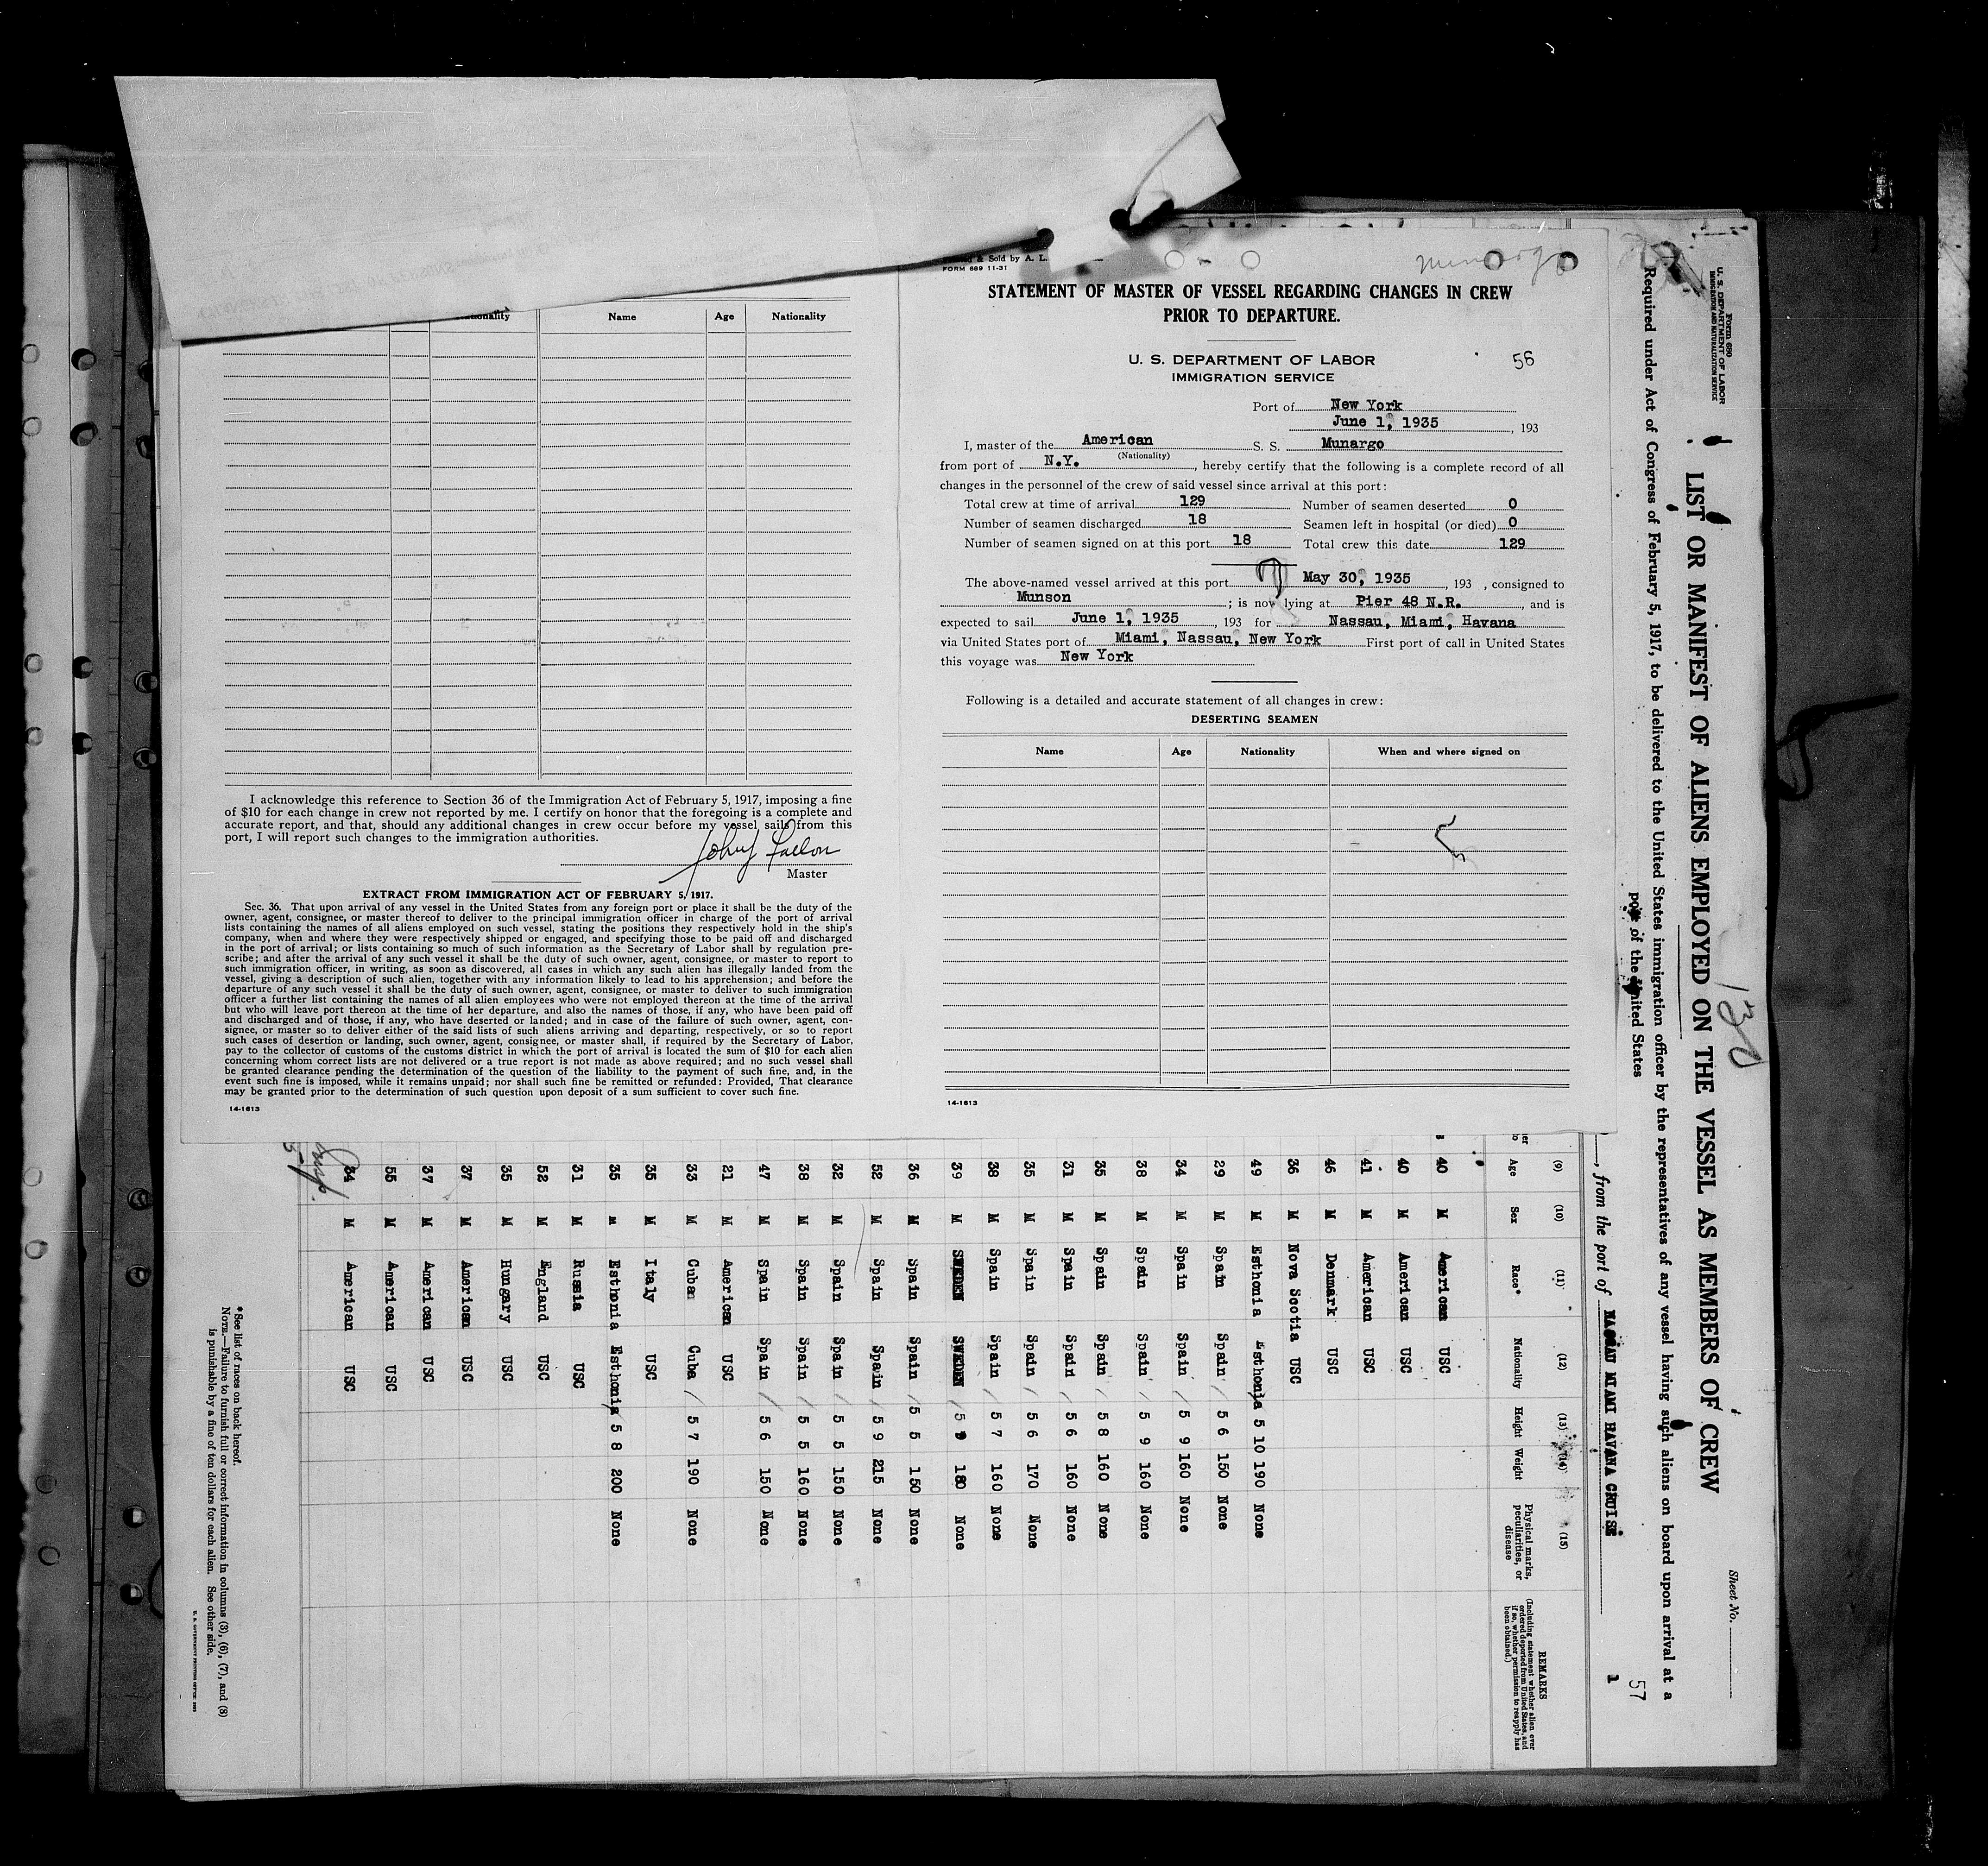 Nationality Name Age Nationality
I acknowledge this reference to Section 36 of the Immigration Act of February 5, 1917, imposing a fine
of $10 for each change in crew not reported by me. I certify on honor that the foregoing is a complete and
accurate report, and that, should any additional changes in crew occur before my vessel sails from this
port, I will report such changes to the immigration authorities.
Master
EXTRACT FROM IMMIGRATION ACT OF FEBRUARY 5, 1917.
Sec. 36. That upon arrival of any vessel in the United States from any foreign port or place it shall be the duty of the
owner, agent, consignee, or master thereof to deliver to the principal immigration officer in charge of the port of arrival
lists containing the names of all aliens employed on such vessel, stating the positions they respectively hold in the ship's
company, when and where they were respectively shipped or engaged, and specifying those to be paid off and discharged
in the port of arrival; or lists containing so much of such information as the Secretary of Labor shall by regulation pre-
scribe; and after the arrival of any such vessel it shall be the duty of such owner, agent, consignee, or master to report to
such immigration officer, in writing, as soon as discovered, all cases in which any such alien has illegally landed from the
vessel, giving a description of such alien, together with any information likely to lead to his apprehension; and before the
departure of any such vessel it shall be the duty of such owner, agent, consignee, or master to deliver to such immigration
officer a further list containing the names of all alien employees who were not employed thereon at the time of the arrival
but who will leave port thereon at the time of her departure, and also the names of those, if any, who have been paid off
and discharged and of those, if any, who have deserted or landed; and in case of the failure of such owner, agent, con-
signee, or master so to deliver either of the said lists of such aliens arriving and departing, respectively, or so to report
such cases of desertion or landing, such owner, agent, consignee, or master shall, if required by the Secretary of Labor,
pay to the collector of customs of the customs district in which the port of arrival is located the sum of $10 for each alien
concerning whom correct lists are not delivered or a true report is not made as above required; and no such vessel shall
be granted clearance pending the determination of the question of the liability to the payment of such fine, and, in the
event such fine is imposed, while it remains unpaid; nor shall such fine be remitted or refunded: Provided, That clearance
may be granted prior to the determination of such question upon deposit of a sum sufficient to cover such fine.
14-1613
& Sold by A. L.
FORM 689 11-31
Munargo
STATEMENT OF MASTER OF VESSEL REGARDING CHANGES IN CREW
PRIOR TO DEPARTURE.
U. S. DEPARTMENT OF LABOR
56
IMMIGRATION SERVICE
Port of New York
June 1, 1935, 193
I, master of the American S. S. Munargo
(Nationality)
from port of N.Y., hereby certify that the following is a complete record of all
changes in the personnel of the crew of said vessel since arrival at this port:
Total crew at time of arrival 129 Number of seamen deserted 0
Number of seamen discharged 18 Seamen left in hospital (or died) 0
Number of seamen signed on at this port 18 Total crew this date 129
The above-named vessel arrived at this port May 30, 1935, 193 , consigned to
Munson; is now lying at Pier 48 N.R., and is
expected to sail June 1, 1935, 193 for Nassau, Miami, Havana
via United States port of Miami, Nassau, New York First port of call in United States
this voyage was New York
Following is a detailed and accurate statement of all changes in crew:
DESERTING SEAMEN
Name Age Nationality When and where signed on
14-1613
Form 680
U. S. DEPARTMENT OF LABOR
IMMIGRATION AND NATURALIZATION SERVICE
Sheet No.
130
LIST OR MANIFEST OF ALIENS EMPLOYED ON THE VESSEL AS MEMBERS OF CREW
Required under Act of Congress of February 5, 1917, to be delivered to the United States immigration officer by the representatives of any vessel having such aliens on board upon arrival at a
port of the United States
57
, from the port of NASSAU MIAMI HAVANA CRUISE 1
(9) (10) (11) (12) (13) (14) (15)
Age Sex Race* Nationality Height Weight Physical marks, peculiarities, or disease
REMARKS
(Including statement whether alien ever
ordered deported from United States, and
if so, whether permission to reapply has
been obtained.)
40 M American USC
40 M American USC
41 M American USC
46 M Denmark USC
36 M Nova Scotia USC
49 M Esthonia Esthonia 5 10 190 None
29 M Spain Spain 5 6 150 None
34 M Spain Spain 5 9 160 None
38 M Spain Spain 5 9 160 None
35 M Spain Spain 5 8 160 None
31 M Spain Spain 5 6 160 None
35 M Spain Spain 5 6 170 None
38 M Spain Spain 5 7 160 None
39 M SWEDEN SWEDEN 5 9 180 None
36 M Spain Spain 5 5 150 None
52 M Spain Spain 5 9 215 None
32 M Spain Spain 5 5 150 None
38 M Spain Spain 5 5 160 None
47 M Spain Spain 5 6 150 None
21 M American USC
33 M Cuban Cuba 5 7 190 None
35 M Italy USC
35 M Esthonia Esthonia 5 8 200 None
31 M Russia USC
52 M England USC
35 M Hungary USC
37 M American USC
37 M American USC
55 M American USC
34 M American USC
*See list of races on back hereof.
NOTE.—Failure to furnish full or correct information in columns (3), (6), (7), and (8)
is punishable by a fine of ten dollars for each alien. See other side.